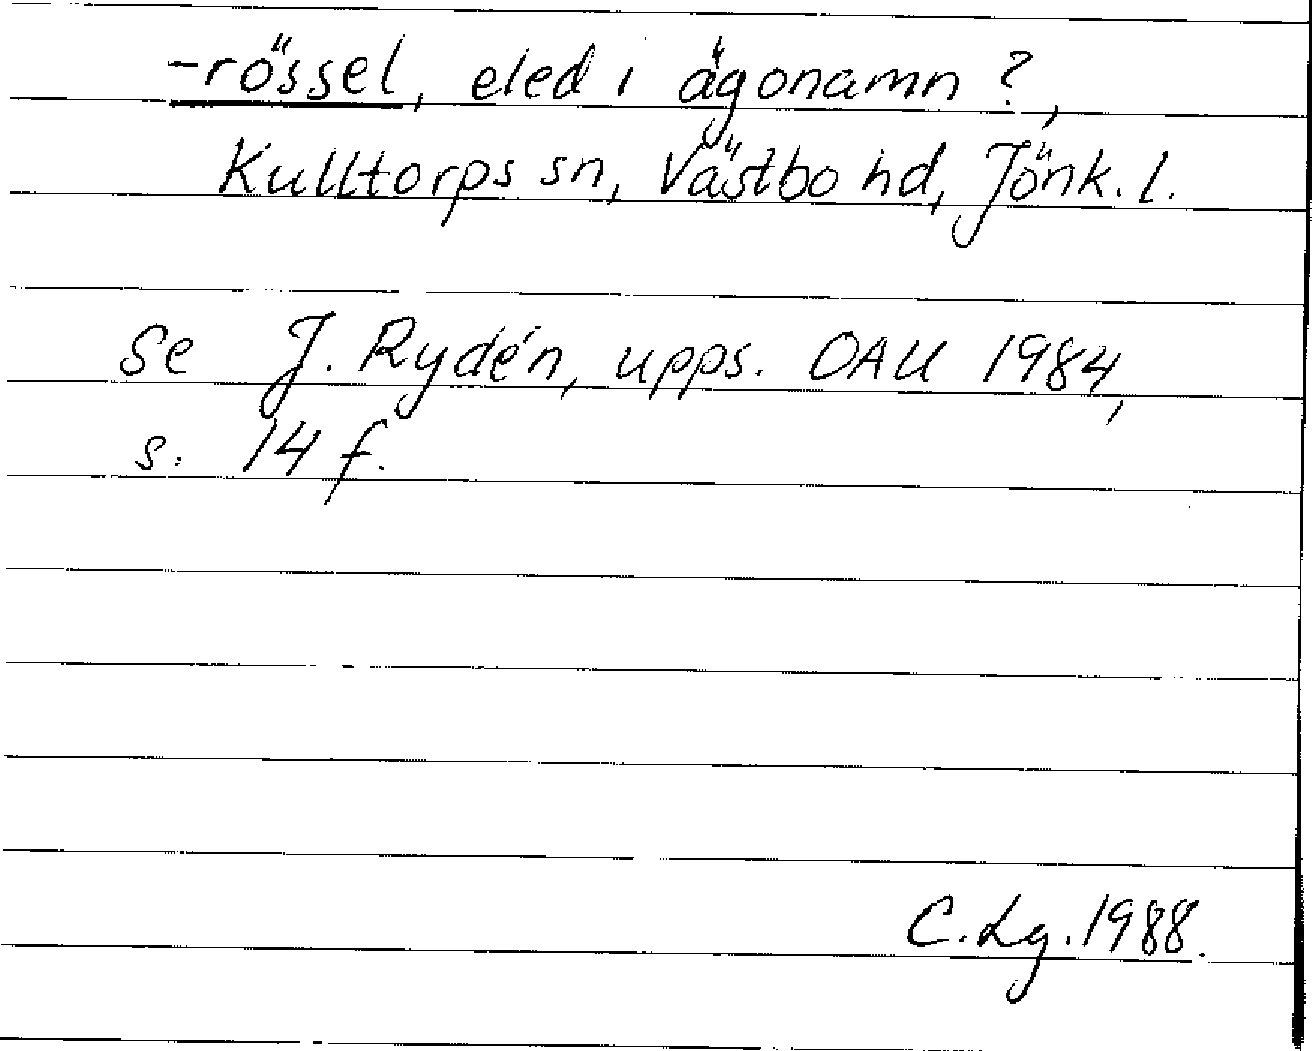 -rössel, eled i ägonamn?,
Kulltorps sn, Västbo hd, Jönk. l.
Se J. Rydén, upps. OAU 1984,
s. 14 f.
C. Lg. 1988.